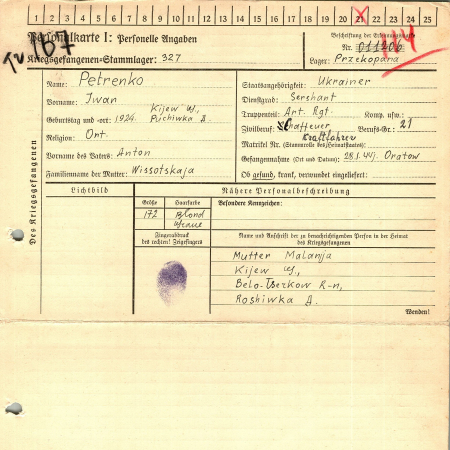 1 2 3 4 5 6 7 8 9 10 11 12 13 14 15 16 17 18 19 20 21 22 23 24 25
Personalkarte I: Personelle Angaben
Kriegsgefangenen-Stammlager: 327
Beschriftung der Erkennungsmarke
Nr. 011206
Lager: Przekopana
Des Kriegsgefangenen
Name: Petrenko
Vorname: Iwan
Kijew u.,
Geburtstag und -ort: 1924. Puchiwka d.
Religion: Ort.
Vorname des Vaters: Anton
Familienname der Mutter: Wissotskaja
Staatsangehörigkeit: Ukrainer
Dienstgrad: Sershant
Truppenteil: Art. Rgt. Komp. usw.:
Zivilberuf: Schaffeuer Berufs-Gr.: 21
Kraftfahrer
Matrikel Nr. (Stammrolle des Heimatstaates):
Gefangennahme (Ort und Datum): 28.1.44j. Oratow
Ob gesund, krank, verwundet eingeliefert:
Lichtbild
Nähere Personalbeschreibung
Größe Haarfarbe
172 Blond
Besondere Kennzeichen:
Fingerabdruck
des rechten! Zeigefingers
Name und Anschrift der zu benachrichtigenden Person in der Heimat
des Kriegsgefangenen
Mutter Malanja
Kijew u.,
Belo-Tserkow R-n,
Roshiwka d.
Wenden!